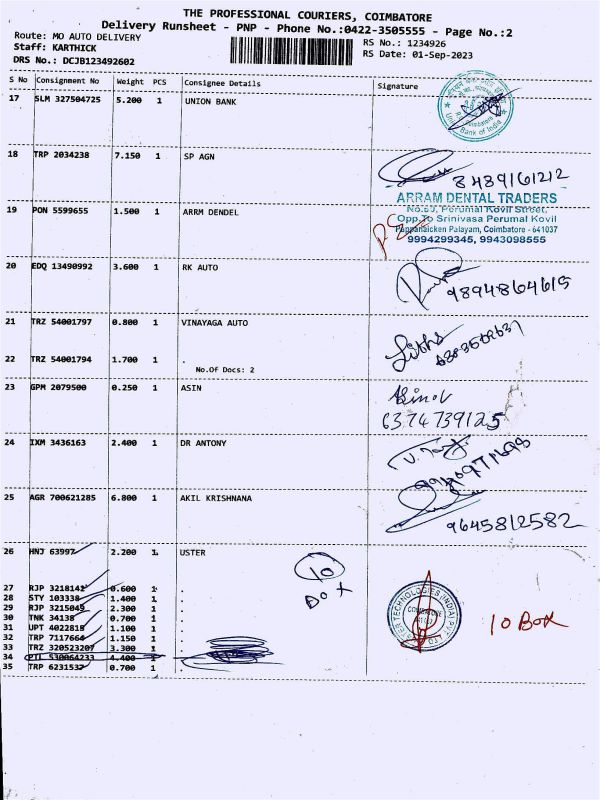 THE PROFESSIONAL COURIERS, COIMBATORE
Delivery Runsheet - PNP - Phone No.:0422-3505555 - Page No.:2
Route: MO AUTO DELIVERY
RS No.: 1234926
Staff: KARTHICK
RS Date: 01-Sep-2023
DRS No.: DCJB123492602
S No Consignment No Weight PCS Consignee Details Signature
17 SLM 327504725 5.200 1 UNION BANK
Union Bank of India
18 TRP 2034238 7.150 1 SP AGN
8489161212
ARRAM DENTAL TRADERS
No.60, Perumal Kovil Street,
19 PON 5599655 1.500 1 ARRM DENDEL
Opp.To Srinivasa Perumal Kovil
Pappanaicken Palayam, Coimbatore - 641037
9994299345, 9943098555
20 EDQ 13490992 3.600 1 RK AUTO
9894864615
21 TRZ 54001797 0.800 1 VINAYAGA AUTO
22 TRZ 54001794 1.700 1 .
No.Of Docs: 2
23 GPM 2079500 0.250 1 ASIN
6374739125
24 IXM 3436163 2.400 1 DR ANTONY
25 AGR 700621285 6.800 1 AKIL KRISHNANA
9645812582
26 HNJ 63997 2.200 1 USTER
10
BOX
27 RJP 3218142 0.600 1 .
28 STY 103338 1.400 1 .
29 RJP 3215049 2.300 1 .
30 TNK 34138 0.700 1 .
31 UPT 4022818 1.100 1 .
32 TRP 7117664 1.150 1 .
33 TRZ 320523207 3.300 1 .
34 PTL 530064233 4.400 1
35 TRP 6231537 0.700 1 .
TECHNOLOGIES (INDIA) PVT LTD
COIMBATORE
10 Box